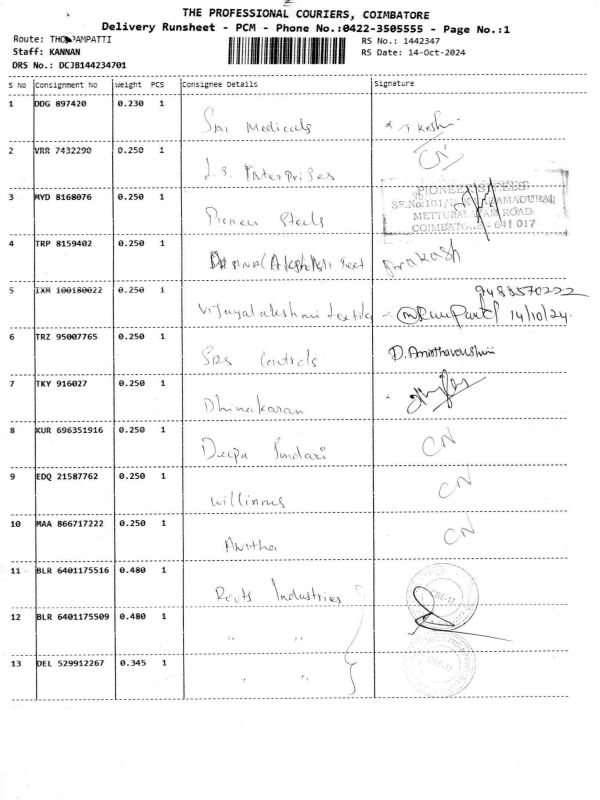 THE PROFESSIONAL COURIERS, COIMBATORE
Delivery Runsheet - PCM - Phone No.:0422-3505555 - Page No.:1
Route: THO AMPATTI
RS No.: 1442347
Staff: KANNAN
RS Date: 14-Oct-2024
DRS No.: DCJB144234701
S No Consignment No Weight PCS Consignee Details Signature
1 DDG 897420 0.230 1 Sri Medicals
2 VRR 7432290 0.250 1 J.S. Enterprises CN
3 MYD 8168076 0.250 1 Pioneer Steels
PIONEER STEELS
SF.No:101/ RAMADURAI
METTUPALAYAM ROAD
COIMBATORE - 641 017
4 TRP 8159402 0.250 1 Prakash
5 IXM 100180022 0.250 1 Vijayalakshmi textile
9488570222
14/10/24.
6 TRZ 95007765 0.250 1 SRS Controls D. Amirthavarshini
7 TKY 916027 0.250 1 Dhinakaran
8 KUR 696351916 0.250 1 Deepa Sundari CN
9 EDQ 21587762 0.250 1 Williams CN
10 MAA 866717222 0.250 1 Anitha CN
11 BLR 6401175516 0.480 1 Roots Industries
CBE-17
12 BLR 6401175509 0.480 1 " "
13 DEL 529912267 0.345 1 " "
CBE-17